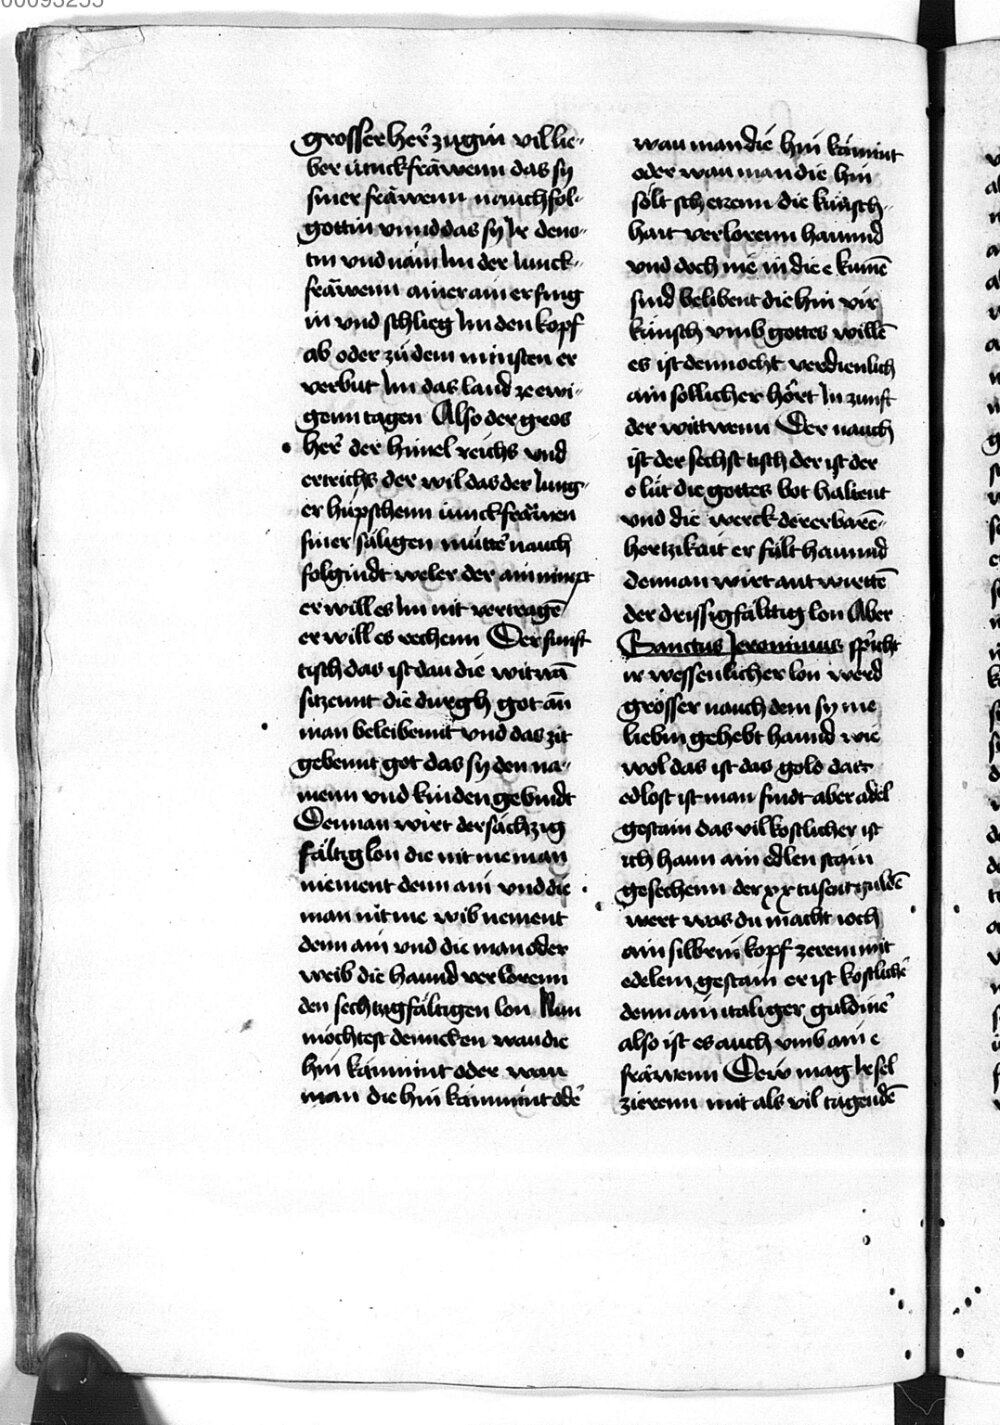 00093255
grosser her̄zugin vil lie-
ber iunckfräwenn das sy
siner fräwenn nauchfol-
gottin vnnd das sy Ir deno-
tin vnd näm Im der Iunck-
fräwenn ainer ain er fing
in vnd schlieg Im den kopf
ab oder zů dem minsten er
verbut Im das land ze ewi-
genn tagen Also der gros
her̄ der himel reichs vnd
ertrichs der wil das der Iung-
er hüpschenn iunckfräwen
siner säligen můtter nauch
folgindt weler der ain nimpt
er will es Im nit vertragē
er will es rechenn Der funft
tisch das ist dan die witwā
sitzennt die durgh got ān
man beleibennt vnd das zit
gebennt got das sy den na-
menn vnd kinden gebindt
Dennan wirt der sächzig
fältig lon die nit me man
niement denn ain vnd die
man nit me wib nement
denn ain vnd die man oder
weib die hannd verlorenn
den sechtzgfältigen lon Nun
möchtest denncken wan die
hin kämmint oder wan
man die hin kämmint odē
wan man die hin kämmint
oder wan man die hin
sölt schetzenn die künsch-
hait verlorenn hannd
vnd doch nie in die e kumē
sind belibent die hin vir
künsch vmb gottes willē
es ist dennocht verdienlich
ain sollicher hört In zunft
der wittwenn Der nauch
ist der sechst tisch der ist der
e lüt die gottes bot haltent
vnd die werck der erbarē-
hertzikait er fült hannd
dennan wirt ant wurttē
der drissigfälttig lon Aber
Sanctus Jeronimus spricht
ir wessenlicher lon werd
grösser nauch dem sy me
liebin gehebt hannd wie
wol das ist das gold das
edlost ist man findt aber adel
gestain das vil kostlicher ist
ich hann ain edlen stain
gesechenn der xx tusent guldē
wert was du macht ioch
ain silbrin kopf zeren mit
edelem gestain er ist kostlichē
denn ain itäliger guldinē
also ist es auch vmb ain e
fräwenn Dew mag Ir sel
zierenn mit als vil tugendē